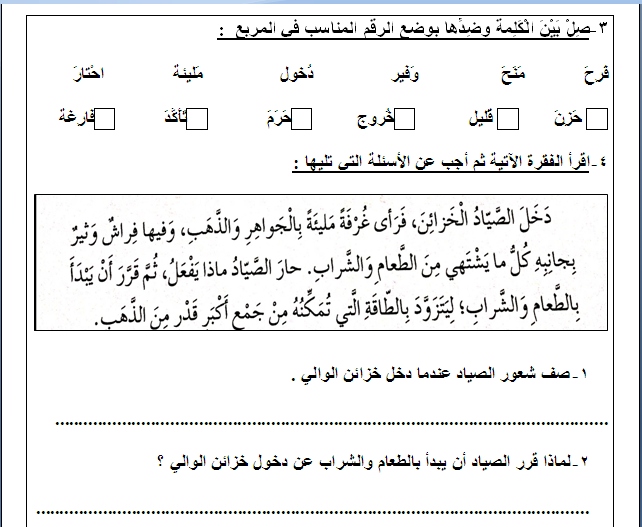 ٣-صِلْ بَيْنَ الْكَلِمة وضِدِّها بوضع الرقم المناسب في المربع :
فَرِحَ مَنَحَ وَفير دُخول مَليئة احْتارَ
حَزنَ قَليل خُروج حَرَمَ تَأكَّدَ فارِغة
٤-اقرأ الفقرة الآتية ثم أجب عن الأسئلة التي تليها :
دَخَلَ الصَّيّادُ الْخَزائِنَ، فَرَأى غُرْفَةً مَليئَةً بِالْجَواهِرِ وَالذَّهَبِ، وَفيها فِراشٌ وَثيرٌ
بِجانِبِهِ كُلُّ ما يَشْتَهي مِنَ الطَّعامِ وَالشَّرابِ. حارَ الصَّيّادُ ماذا يَفْعَلُ، ثُمَّ قَرَّرَ أَنْ يَبْدَأَ
بِالطَّعامِ وَالشَّرابِ؛ لِيَتَزَوَّدَ بِالطّاقَةِ الَّتي تُمَكِّنُهُ مِنْ جَمْعِ أَكْبَرِ قَدْرٍ مِنَ الذَّهَبِ.
١-صف شعور الصياد عندما دخل خزائن الوالي .
٢-لماذا قرر الصياد أن يبدأ بالطعام والشراب عن دخول خزائن الوالي ؟